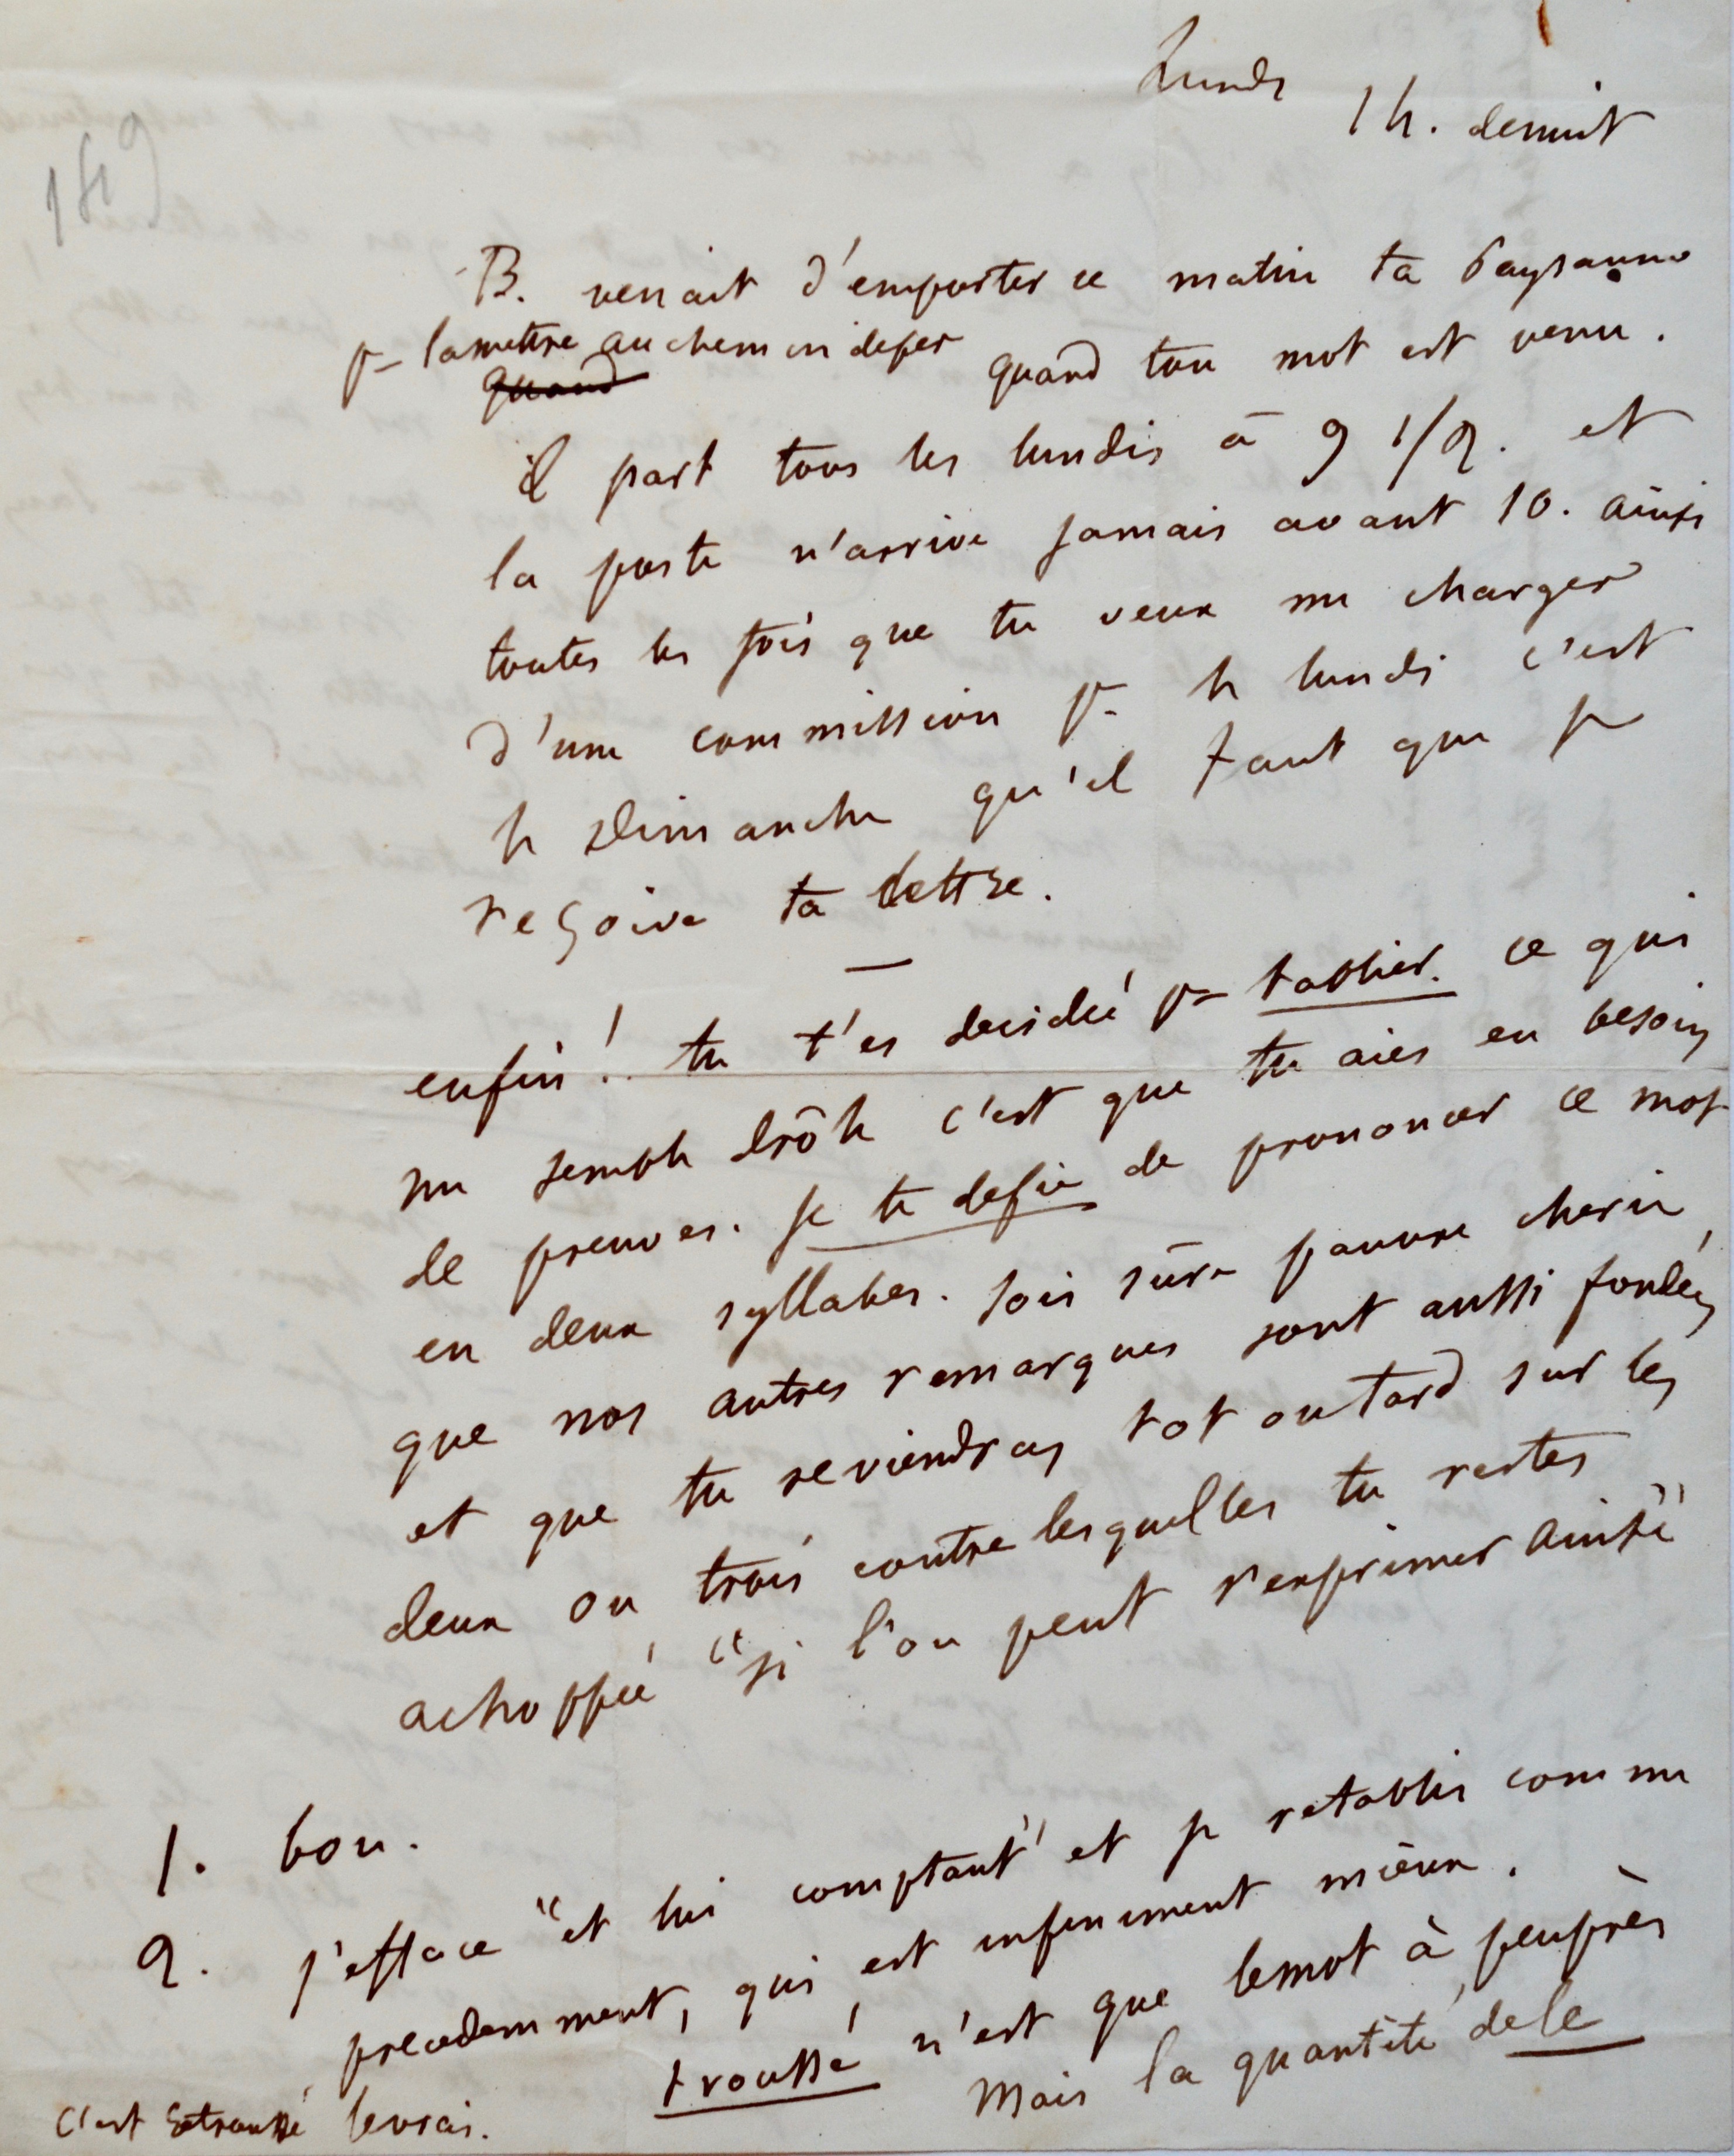 Lundi
1 h. de nuit
149
B. venait d'emporter ce matin ta Paysanne
pr la mettre au chemin de fer quand ton mot est venu.
quand
il part tous les lundis à 9 1/2. et
la poste n'arrive jamais avant 10. ainsi
toutes les fois que tu veux me charger
d'une commission pr le lundi c'est
le Dimanche qu'il faut que je
reçoive ta lettre.
enfin! tu t'es decidée pr tablier. ce qui
me semble drôle c'est que tu aies eu besoin
de preuves. je te defie de prononcer ce mot
en deux syllabes. sois sûre pauvre cherie
que nos autres remarques sont aussi fondées
et que tu reviendras tot ou tard sur les
deux ou trois contre lesquelles tu restes
achoppée "si l'on peut s'exprimer ainsi"
1. bon.
2. j'efface "et lui comptant" et je retablis comme
precedemment, qui est infiniment mieux.
troussé n'est que le mot à peu près
c'est retroussé le vrai. Mais la quantité de le